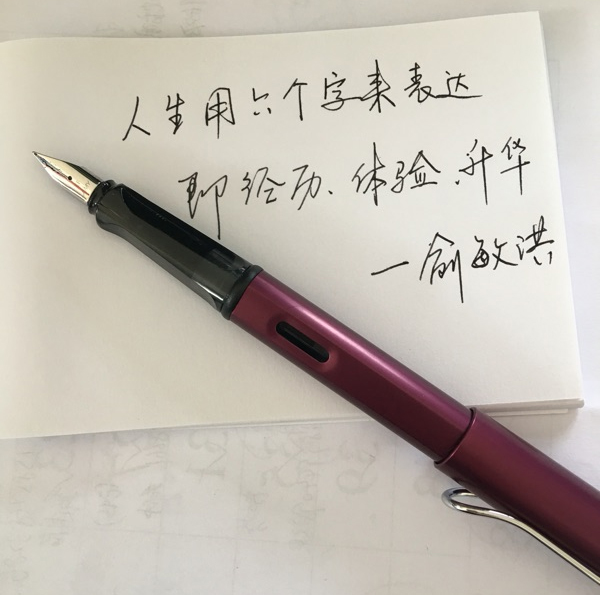 人生用六个字来表达
即经历、体验、升华
—俞敏洪